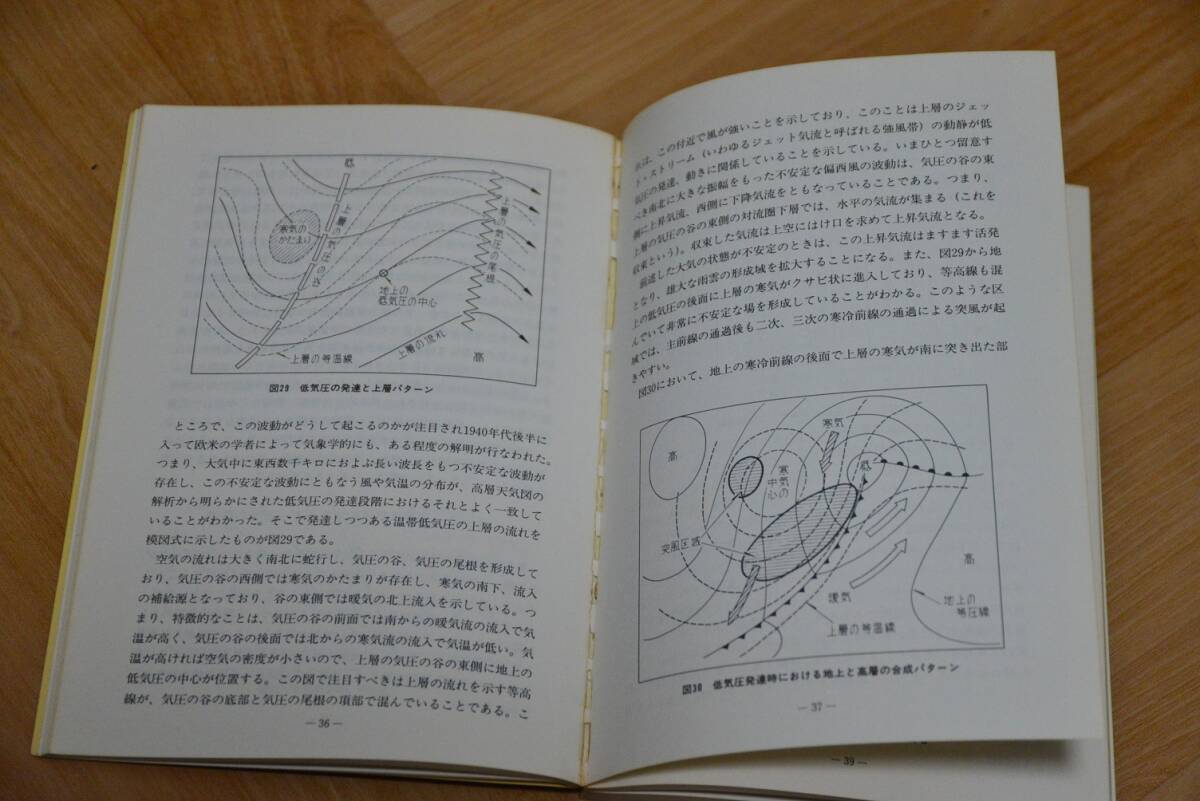 低
寒気の
かたまり
上層の気圧の谷
上層の気圧の尾根
地上の
低気圧の中心
上層の流れ
上層の等温線
高
図29 低気圧の発達と上層パターン
ところで、この波動がどうして起こるのかが注目され1940年代後半に
入って欧米の学者によって気象学的にも、ある程度の解明が行なわれた。
つまり、大気中に東西数千キロにおよぶ長い波長をもつ不安定な波動が
存在し、この不安定な波動にともなう風や気温の分布が、高層天気図の
解析から明らかにされた低気圧の発達段階におけるそれとよく一致して
いることがわかった。そこで発達しつつある温帯低気圧の上層の流れを
模図式に示したものが図29である。
空気の流れは大きく南北に蛇行し、気圧の谷、気圧の尾根を形成して
おり、気圧の谷の西側では寒気のかたまりが存在し、寒気の南下、流入
の補給源となっており、谷の東側では暖気の北上流入を示している。つ
まり、特徴的なことは、気圧の谷の前面では南からの暖気流の流入で気
温が高く、気圧の谷の後面では北からの寒気流の流入で気温が低い。気
温が高ければ空気の密度が小さいので、上層の気圧の谷の東側に地上の
低気圧の中心が位置する。この図で注目すべきは上層の流れを示す等高
線が、気圧の谷の底部と気圧の尾根の頂部で混んでいることである。こ
—36—
れは、この付近で風が強いことを示しており、このことは上層のジェッ
ト・ストリーム(いわゆるジェット気流と呼ばれる強風帯)の動静が低
気圧の発達、動きに関係していることを示している。いまひとつ留意す
べき南北に大きな振幅をもった不安定な偏西風の波動は、気圧の谷の東
側に上昇気流、西側に下降気流をともなっていることである。つまり、
上層の気圧の谷の東側の対流圏下層では、水平の気流が集まる(これを
収束という)。収束した気流は上空にはけ口を求めて上昇気流となる。
前述した大気の状態が不安定のときは、この上昇気流はますます活発
となり、雄大な雨雲の形成域を拡大することになる。また、図29から地
上の低気圧の後面に上層の寒気がクサビ状に進入しており、等高線も混
んでいて非常に不安定な場を形成していることがわかる。このような区
域では、主前線の通過後も二次、三次の寒冷前線の通過による突風が起
きやすい。
図30において、地上の寒冷前線の後面で上層の寒気が南に突き出た部
高
寒気
寒気の
中心
低
突風区域
暖気
上層の等温線
高
地上の
等圧線
図30 低気圧発達時における地上と高層の合成パターン
—37—
—39—